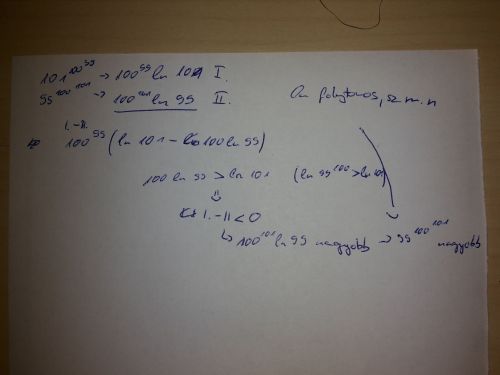 101^100^99 → 100^99 ln 101 I.
99^100^101 → 100^101 ln 99 II.
ln folytonos, sz. m. n
I.-II.
100^99 (ln 101 - 100 ln 99)
100 ln 99 > ln 101 (ln 99^100 > ln 101)
⇓
I.-II < 0
↳ 100^101 ln 99 nagyobb → 99^100^101 nagyobb